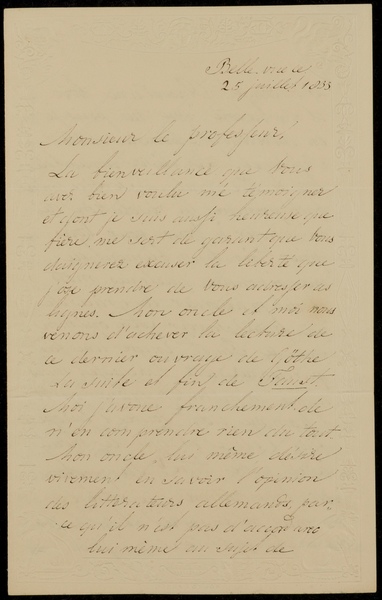 Belle-vue ce
25 juillet 1833
Monsieur le professeur!
La bienveillance que vous
avez bien voulu me témoigner
et dont je suis aussi heureuse que
fière, me sert de garant que vous
daignerez excuser la liberté que
j'ôse prendre de vous adresser ces
lignes. Mon oncle et moi nous
venons d'achever la lecture de
ce dernier ouvrage de Göthe
La suite et fin de Faust.
Moi j'avoue franchement de
n'en comprendre rien du tout.
Mon oncle lui même désire
vivement en savoir l'opinion
des littérateurs allemands, par-
ce qu'il n'est pas d'accord avec
lui même au sujet de